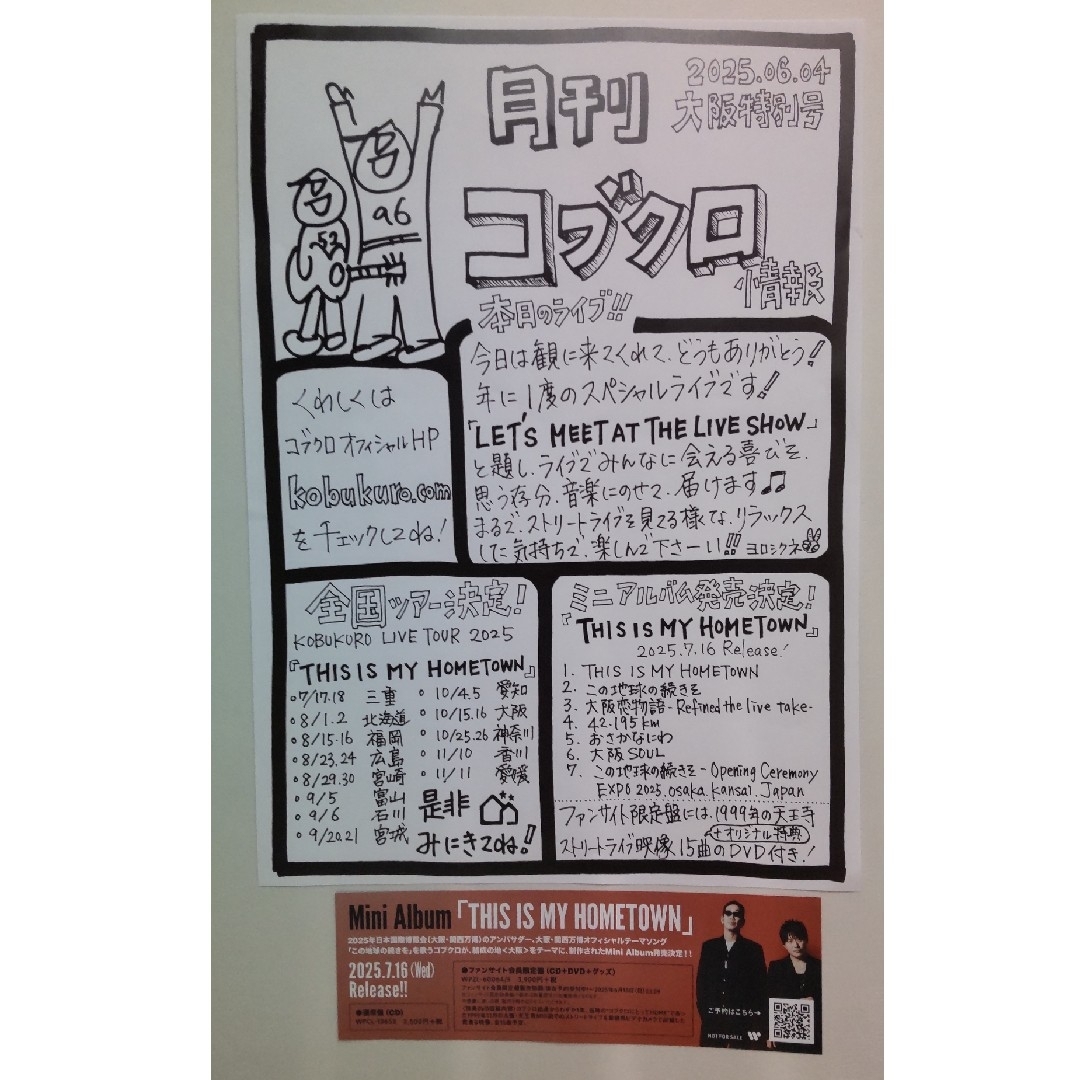 2025.06.04
大阪特別号
月刊
コブクロ
情報
96
52
本日のライブ!!
今日は観に来てくれて、どうもありがとう!
年に1度のスペシャルライブです!
「LET'S MEET AT THE LIVE SHOW」
と題し、ライブでみんなに会える喜びを、
思う存分、音楽にのせて、届けます♫
まるで、ストリートライブを見てる様な、リラックス
した気持ちで、楽しんで下さーい!! ヨロシクネ
くわしくは
コブクロ オフィシャルHP
kobukuro.com
をチェックしてね!
全国ツアー決定!
KOBUKURO LIVE TOUR 2025
『THIS IS MY HOMETOWN』
○7/17.18 三重
○8/1.2 北海道
○8/15.16 福岡
○8/23.24 広島
○8/29.30 宮崎
○9/5 富山
○9/6 石川
○9/20.21 宮城
○10/4.5 愛知
○10/15.16 大阪
○10/25.26 神奈川
○11/10 香川
○11/11 愛媛
是非
みにきてね!
ミニアルバム発売決定!
『THIS IS MY HOMETOWN』
2025.7.16 Release!
1. THIS IS MY HOMETOWN
2. この地球の続きを
3. 大阪恋物語 - Refined the live take -
4. 42.195km
5. おさかなにわ
6. 大阪SOUL
7. この地球の続きを - Opening Ceremony
EXPO 2025. osaka. kansai. Japan
ファンサイト限定盤には、1999年の天王寺
+オリジナル特典
ストリートライブ映像 15曲のDVD付き!
Mini Album「THIS IS MY HOMETOWN」
2025年日本国際博覧会(大阪・関西万博)のアンバサダー、大阪・関西万博オフィシャルテーマソング
「この地球の続きを」を歌うコブクロが、結成の地<大阪>をテーマに、制作されたMini Album発売決定!!
2025.7.16(Wed)
Release!!
●通常盤(CD)
●ファンサイト会員限定盤(CD+DVD+グッズ)
ご予約はこちら→
NOT FOR SALE